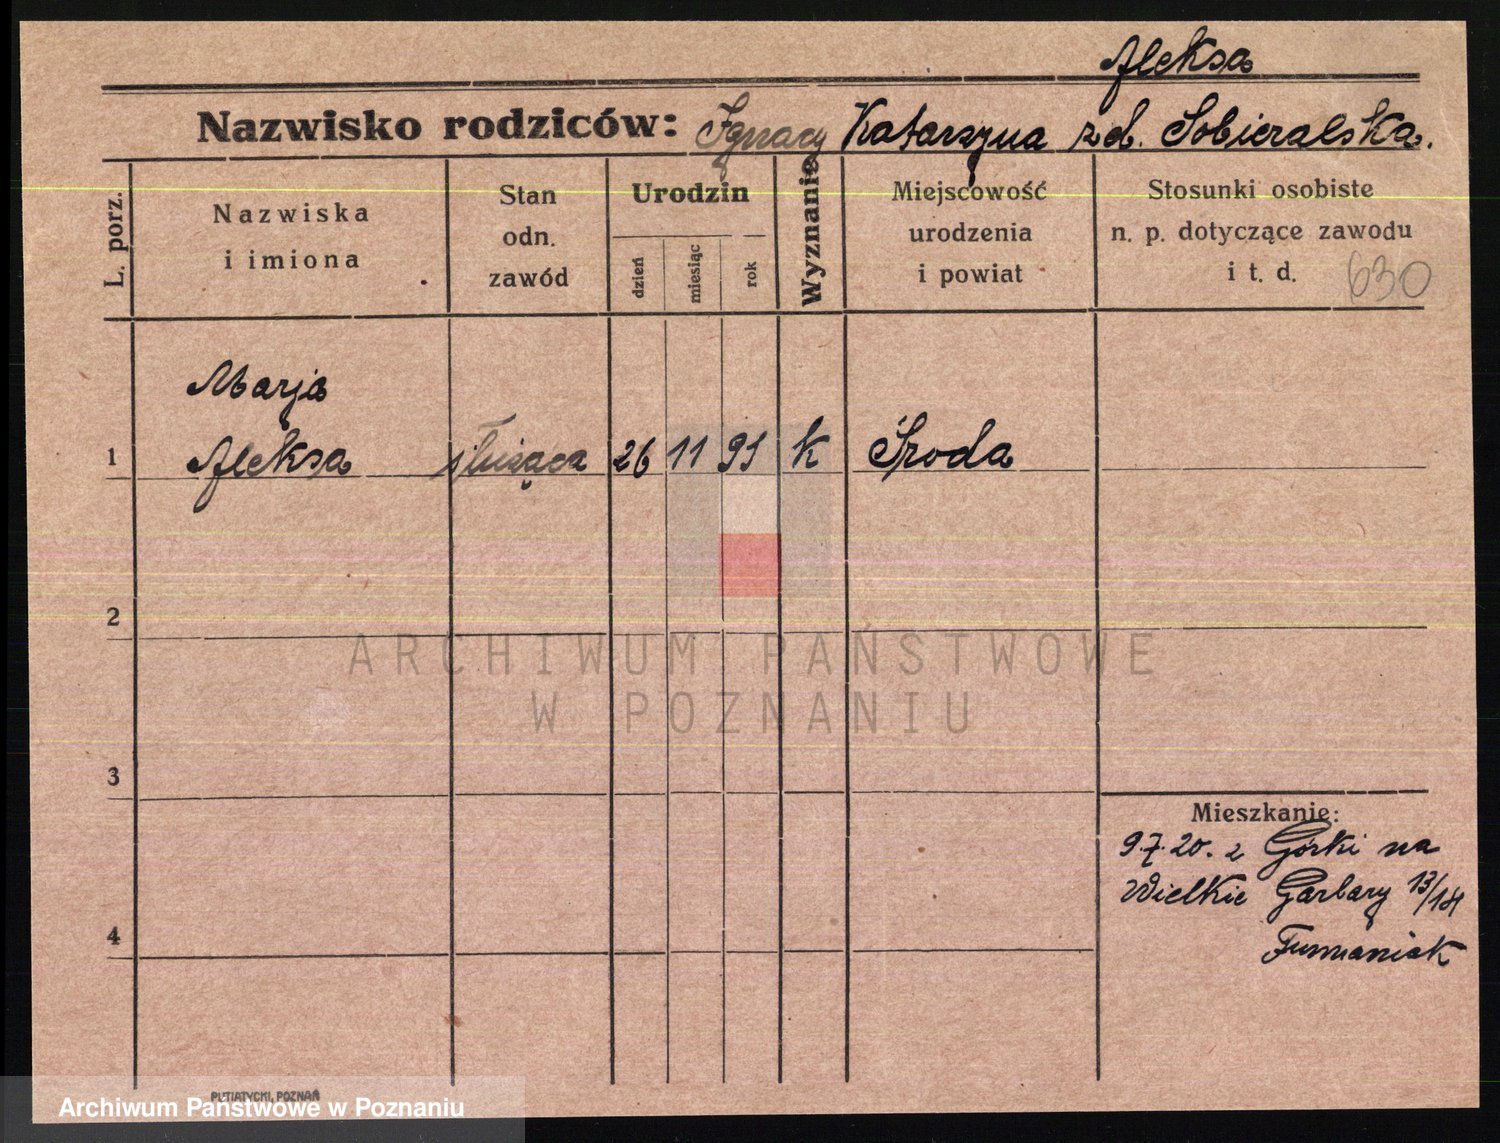 Aleksa
Nazwisko rodziców: Ignacy Katarzyna z d. Sobieralska.
L. porz.
Nazwiska i imiona
Stan odn. zawód
Urodzin
dzień
miesiąc
rok
Wyznanie
Miejscowość urodzenia i powiat
Stosunki osobiste n. p. dotyczące zawodu i t. d.
630
Marja
1 Aleksa służąca 26 11 91 k Środa
2
3
4
Mieszkanie:
9.7.20. z Górki na
Wielkie Garbary 13/14
ARCHIWUM PAŃSTWOWE
W POZNANIU
PUTIATYCKI, POZNAŃ
Archiwum Państwowe w Poznaniu